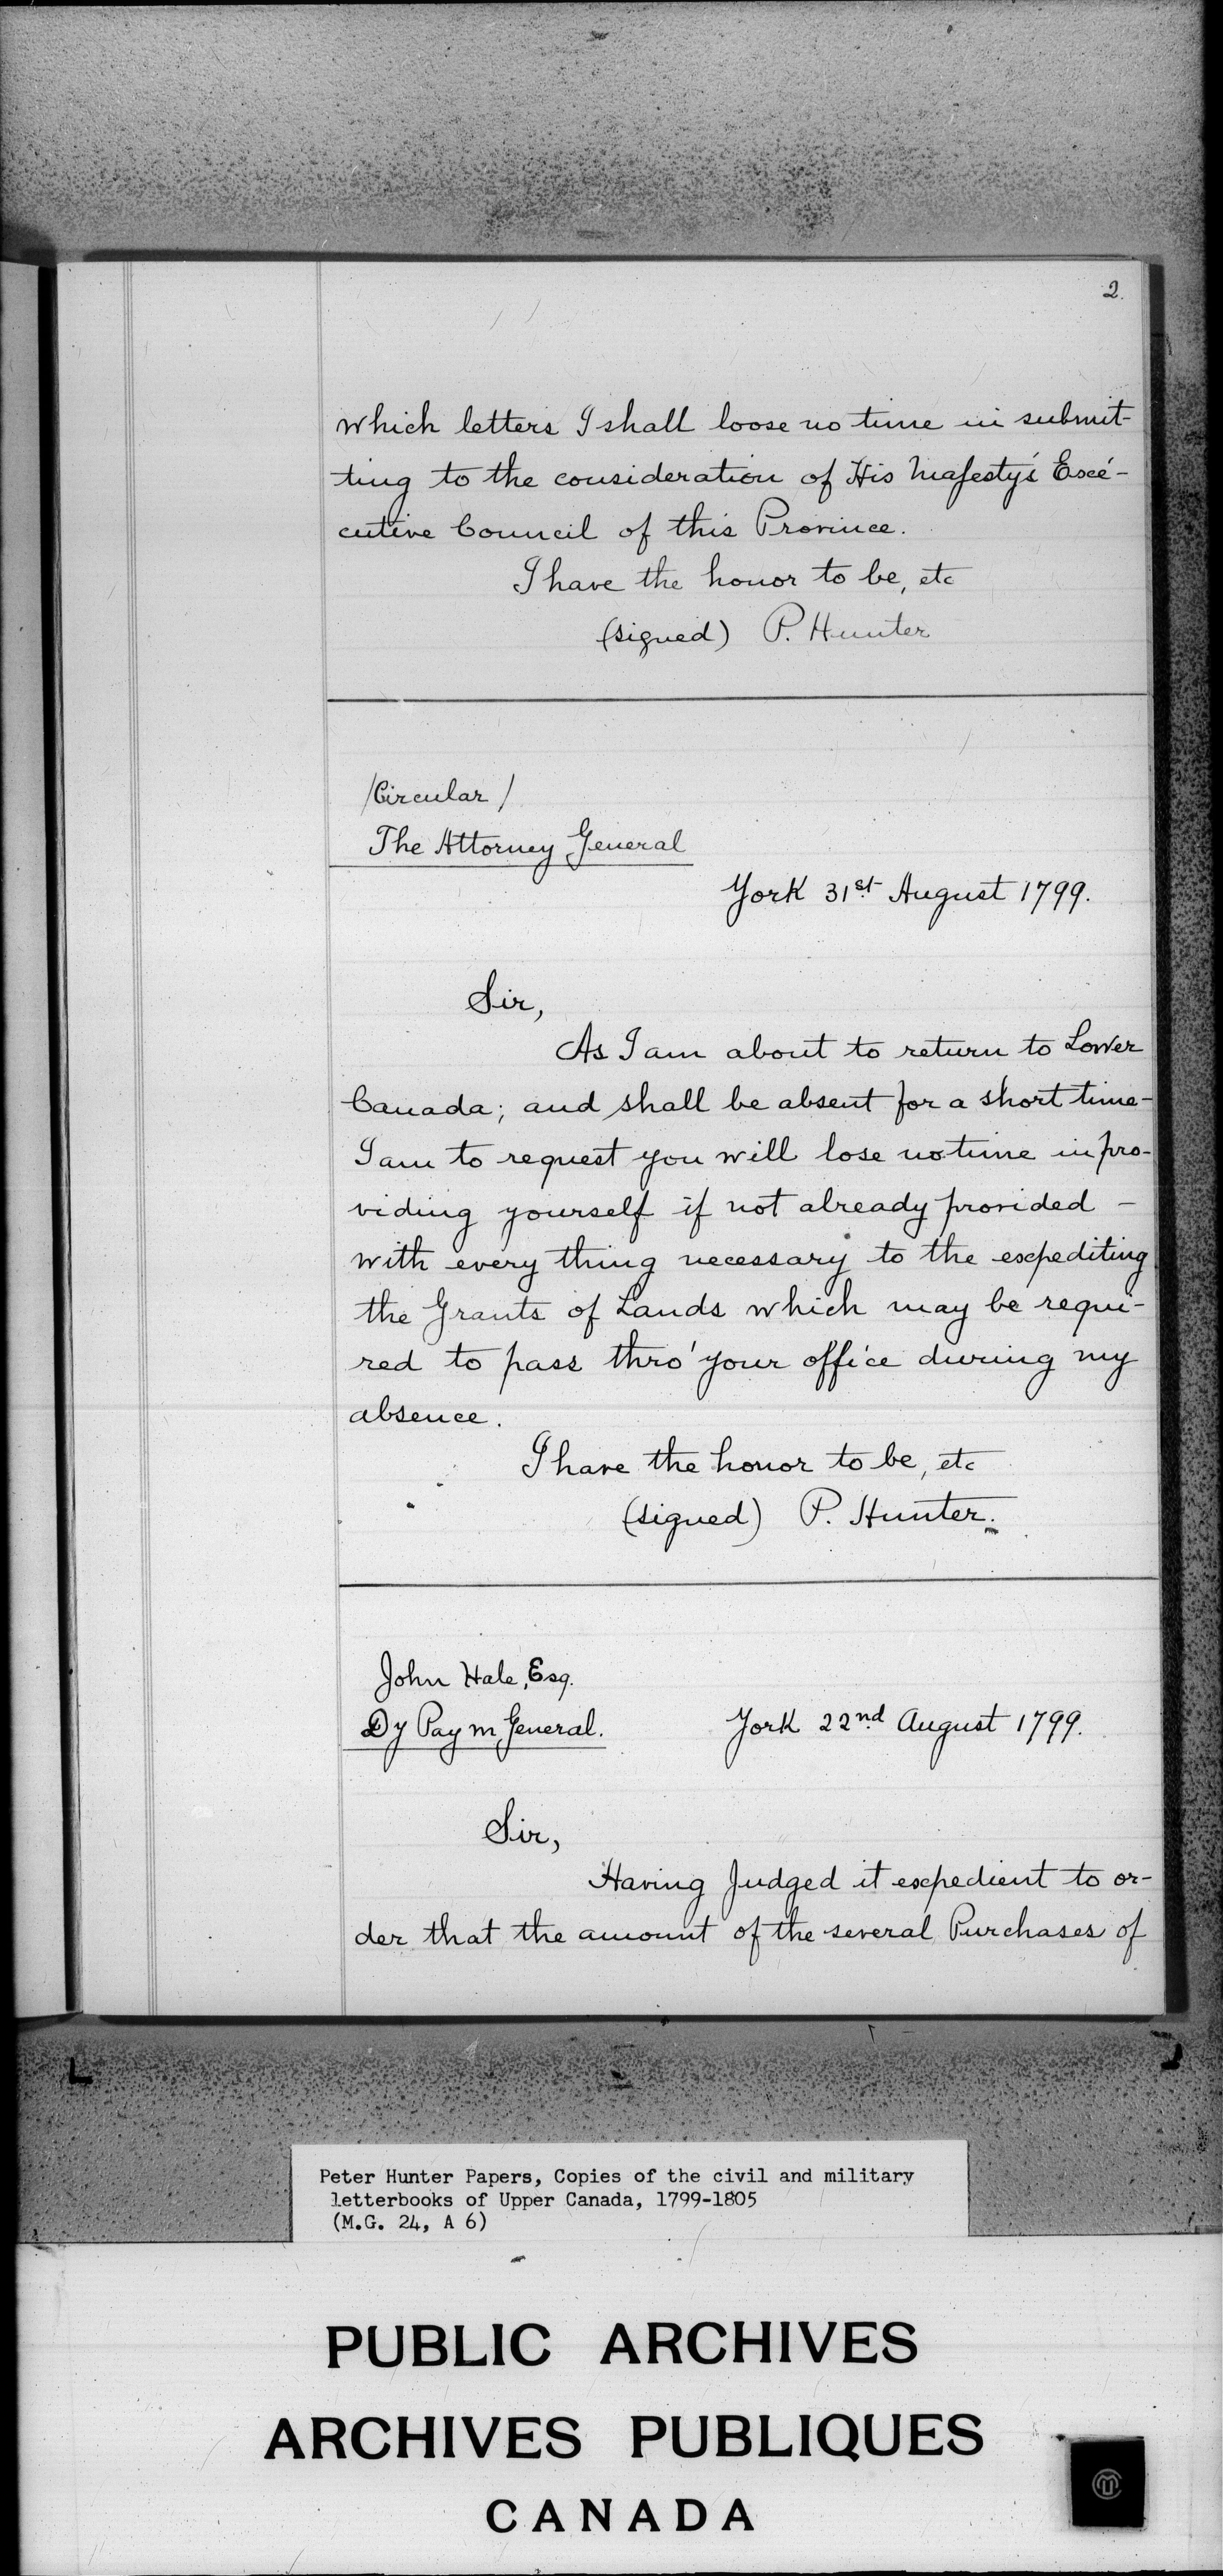 2.
which letters I shall loose no time in submit-
ting to the consideration of His Majesty's Exe-
cutive Council of this Province.
I have the honor to be, etc
(signed) P. Hunter
/Circular/
The Attorney General
York 31st August 1799.
Sir,
As I am about to return to Lower
Canada; and shall be absent for a short time-
I am to request you will lose no time in pro-
viding yourself if not already provided -
with every thing necessary to the expediting
the Grants of Lands which may be requi-
red to pass thro' your office during my
absence.
I have the honor to be, etc
(signed) P. Hunter.
John Hale, Esq.
Dy Pay m General.
York 22nd August 1799.
Sir,
Having Judged it expedient to or-
der that the amount of the several Purchases of
Peter Hunter Papers, Copies of the civil and military
letterbooks of Upper Canada, 1799-1805
(M.G. 24, A 6)
PUBLIC ARCHIVES
ARCHIVES PUBLIQUES
CANADA